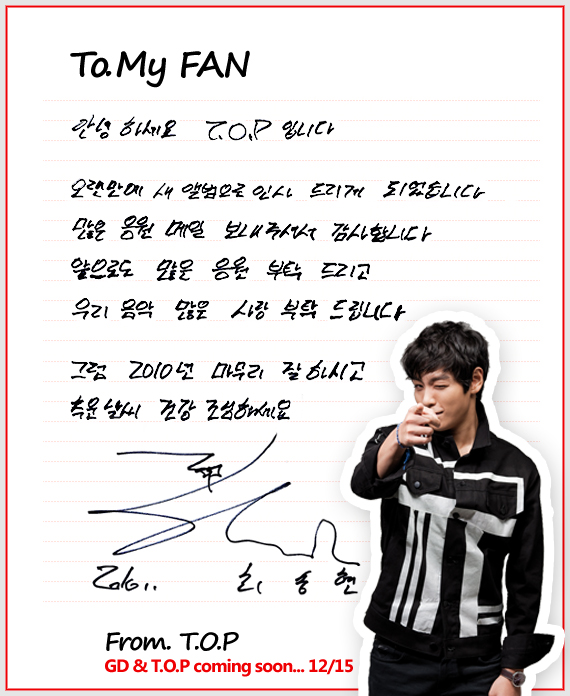 To. My FAN
안녕하세요 T.O.P 입니다
오랜만에 새 앨범으로 인사 드리게 되었습니다
많은 응원 메일 보내주셔서 감사합니다
앞으로도 많은 응원 부탁 드리고
우리 음악 많은 사랑 부탁 드립니다
그럼 2010년 마무리 잘 하시고
추운 날씨 건강 조심하세요
2010..
최 승 현
From. T.O.P
GD & T.O.P coming soon... 12/15